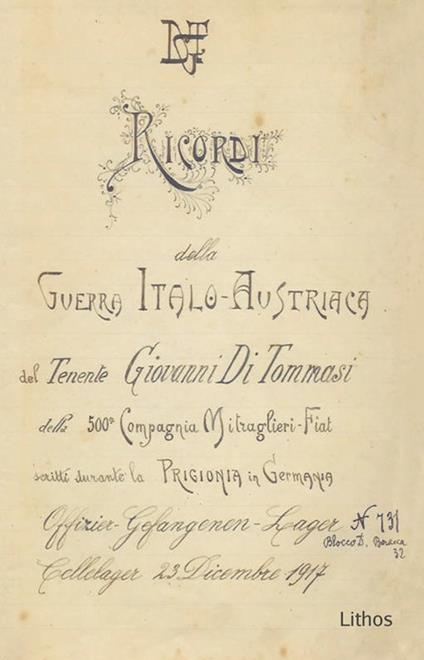 RICORDI
della
GUERRA ITALO-AUSTRIACA
del Tenente Giovanni Di Tommasi
della 500ª Compagnia Mitraglieri-Fiat
scritti durante la PRIGIONIA in GERMANIA
Offizier-Gefangenen-Lager N 731
Blocco D. Baracca
32
Cellelager 23 Dicembre 1917
Lithos